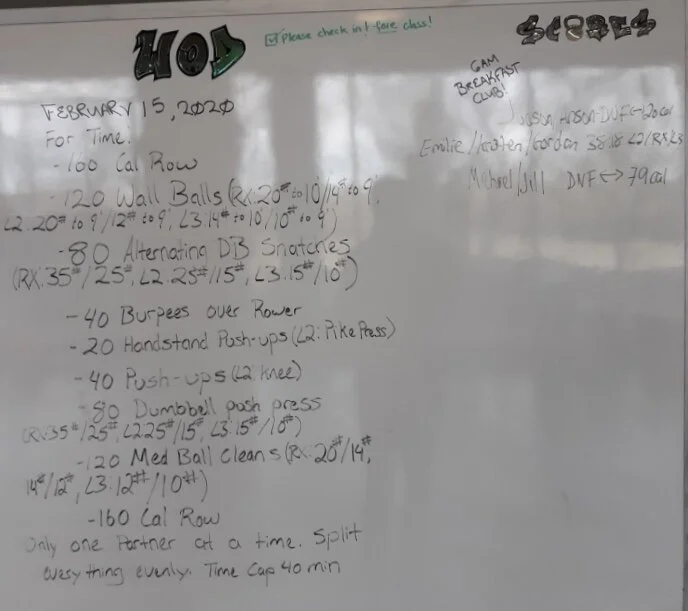 WOD
Please check in before class!
SCORES
FEBRUARY 15, 2020
For Time:
-160 Cal Row
-120 Wall Balls (Rx: 20# to 10'/14# to 9',
L2: 20# to 9'/12# to 9', L3: 14# to 10'/10# to 9')
-80 Alternating DB Snatches
(RX: 35#/25#, L2: 25#/15#, L3: 15#/10#)
-40 Burpees over Rower
-20 Handstand Push-ups (L2: Pike Press)
-40 Push-ups (L2: Knee)
-80 Dumbbell push press
(RX: 35#/25#, L2 25#/15#, L3: 15#/10#)
-120 Med Ball Cleans (RX: 20#/14#,
14#/12#, L3: 12#/10#)
-160 Cal Row
Only one Partner at a time. Split
everything evenly. Time Cap 40 min
6AM
BREAKFAST
CLUB!
DNF
Emilie/Kristen/Gordon 38:18 L2/RX/L3
Michael/Jill DNF ↔ 79 cal